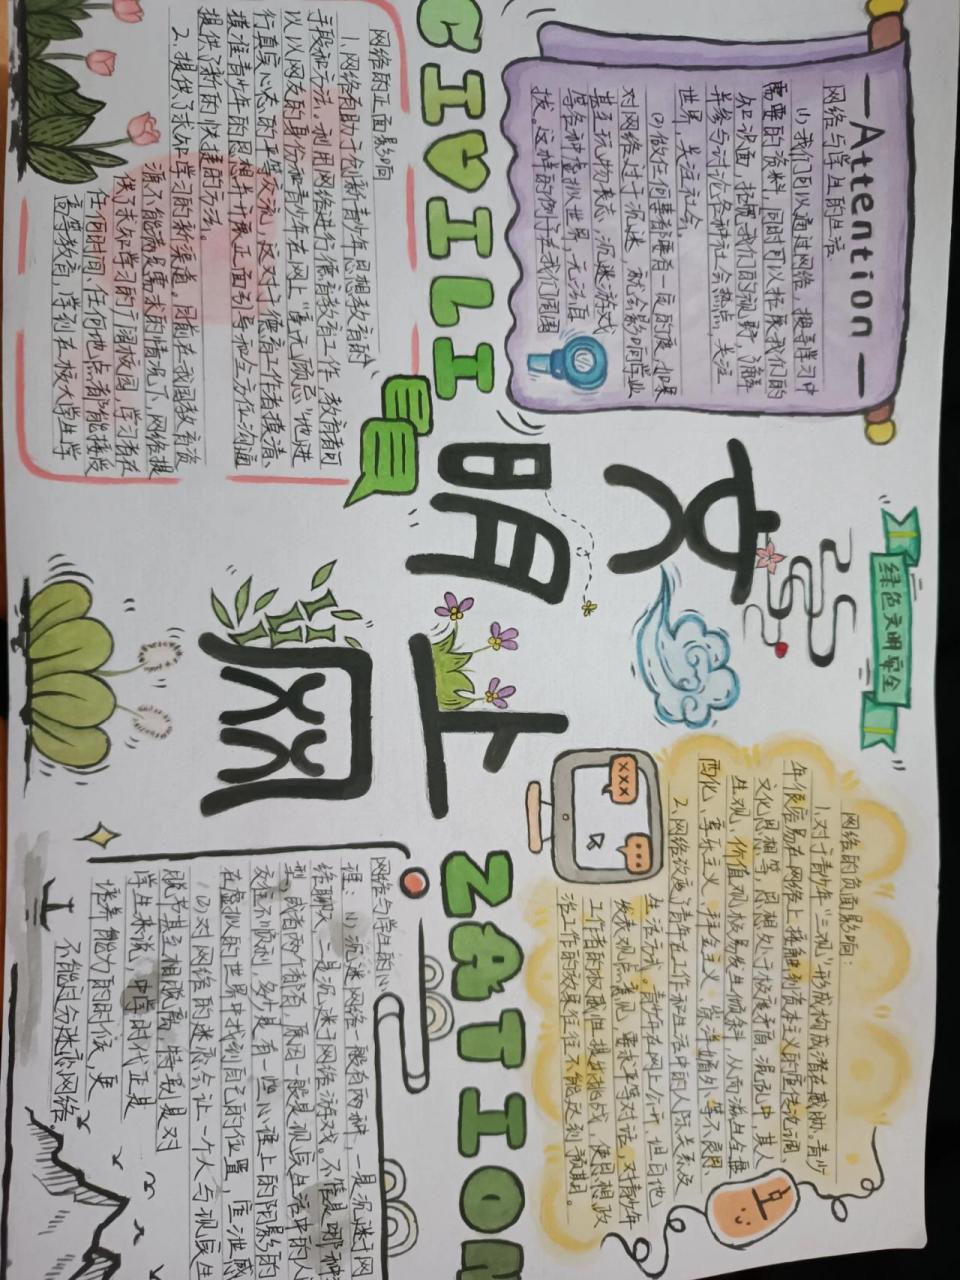 CIVILIZATION
文明上网
绿色文明安全
—Attention—
网络与学生的生活
(1)我们可以通过网络,搜寻学习中
需要的资料,同时可以拓展我们的
知识面,拓宽我们的视野,了解
并参与讨论各种社会热点,关注
世界,关注社会。
(2)做任何事都要有一定的度,如果
对网络过于沉迷,就会影响学业
甚至玩物丧志,沉迷游戏
等各种虚拟世界,无法自
拔。这样的例子在我们周围
网络的正面影响
1.网络有助于创新青少年思想教育的
手段和方法。利用网络进行德育教育工作,教育者可
以以网友的身份和青少年在网上“毫无顾忌”地进
行真实心态的平等交流,这对于德育工作者摸清、
摸准青少年的思想并开展正面引导和全方位沟通
提供了新的快捷的方法。
2.提供了求知学习的新渠道。目前在我国教育资
源不能满足需求的情况下,网络提
供了求知学习的广阔校园,学习者在
任何时间、任何地点都能接受
高等教育,学到在校大学生学
网络的负面影响:
1.对于青少年“三观”形成构成潜在威胁。青少
年很容易在网络上接触到资本主义的宣传论调、
文化思想等,思想处于极度矛盾、混乱中,其人
生观、价值观极易发生倾斜,从而滋生全盘
西化、享乐主义、拜金主义、崇洋媚外等不良思
2.网络改变了青年在工作和生活中的人际关系及
生活方式。青少年在网上公开、坦白地
发表观点意见,要求平等对话,对青少年
工作者的权威性提出挑战,使思想政
治工作的效果往往不能达到预期。
xxx
网络与学生的心
理:(1)沉迷网络一般有两种,一是沉迷于网
络聊天,二是沉迷于网络游戏。不管是哪种
型,或者两个都有,原因一般是现实生活中的人
交往不顺利,多少是有一些心理上的阴影的
在虚拟的世界中找到自己的位置,宣泄感
(2)对网络的迷恋会让一个人与现实生
脱节甚至相脱离,特别是对
学生来说,中学时代正是
培养能力的时候,更
不能过分迷恋网络。